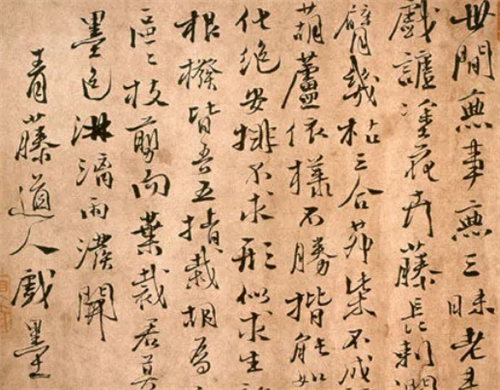 世間無事無三昧老
戲謔塗花卉藤長刺闊
臂幾枯三合茅柴不成
葫蘆依樣不勝揩能如
化絕安排不求形似求生
根撥皆吾五指栽胡為
區〻枝剪而葉裁君莫
墨色淋漓雨潑開
青藤道人戲墨